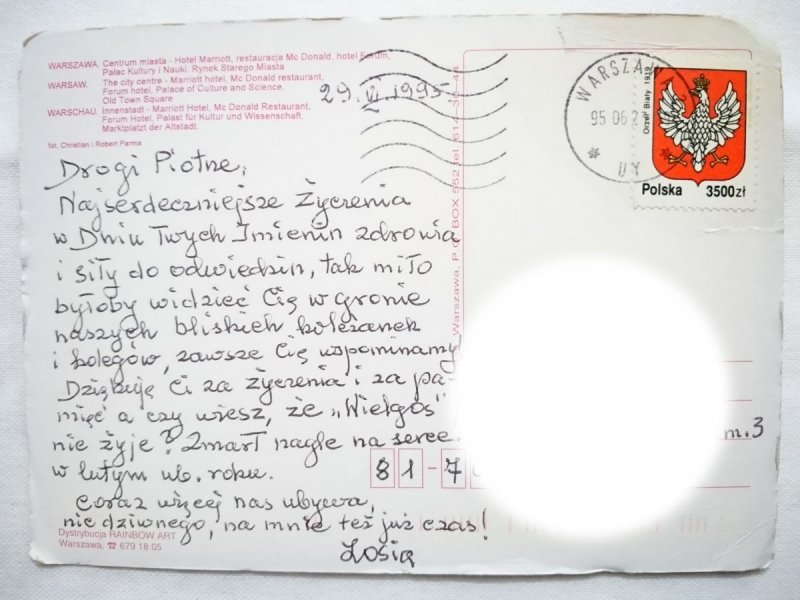 WARSZAWA. Centrum miasta - Hotel Marriott, restauracja Mc Donald, hotel Forum,
Pałac Kultury i Nauki. Rynek Starego Miasta
WARSAW. The city centre - Marriott hotel, Mc Donald restaurant,
Forum hotel, Palace of Culture and Science.
Old Town Square
WARSCHAU. Innenstadt - Marriott Hotel, Mc Donald Restaurant,
Forum Hotel, Palast für Kultur und Wissenschaft.
Marktplatz der Altstadt.
fot. Christian i Robert Parma
29.VI.1995.
Drogi Piotrze,
Najserdeczniejsze Życzenia
w Dniu Twych Imienin zdrowia
i siły do odwiedzin, tak miło
byłoby widzieć Cię w gronie
naszych bliskich koleżanek
i kolegów, zawsze Cię wspominamy
Dziękuję Ci za życzenia i za pa-
mięć a czy wiesz, że „Wielgos"
nie żyje? Zmarł nagle na serce
w lutym ub. roku.
Coraz więcej nas ubywa,
nie dziwnego, na mnie też już czas!
Zosia
Dystrybucja RAINBOW ART
Warszawa, ☎ 679 18 05
Warszawa, P.O. BOX 552 tel. 614-30-44
WARSZA
95 06 2
UY
Orzeł Biały 1919
Polska 3500zł
m.3
81-7